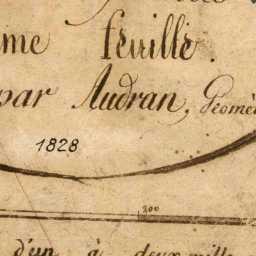 me feuille.
par Audran, Géomè
1828
200
d'un à deux mille